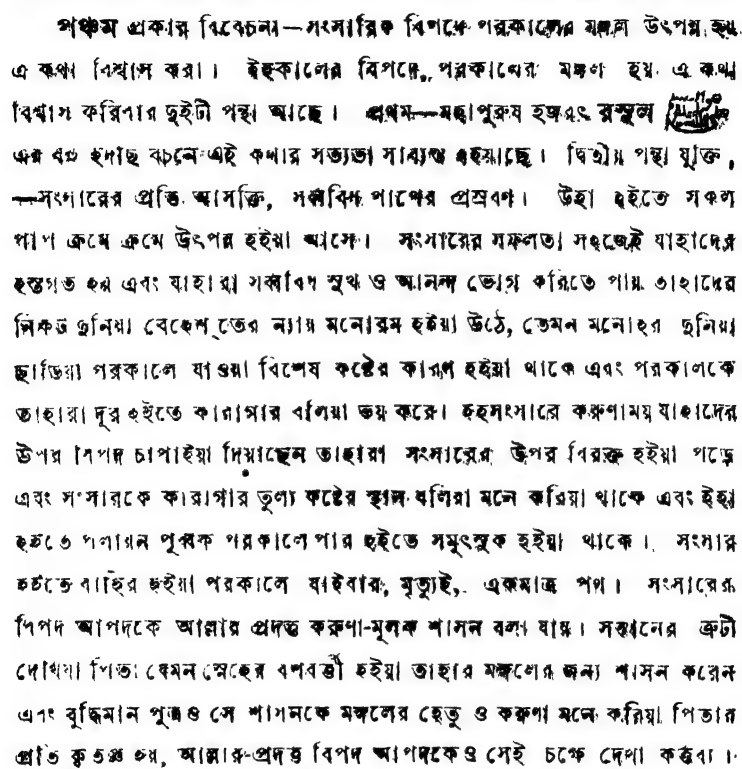 পঞ্চম প্রকার বিবেচনা—সংসারিক বিপদে পরকালের মঙ্গল উৎপন্ন হয়
এ কথা বিশ্বাস করা। ইহকালের বিপদে, পরকালের মঙ্গল হয় এ কথা
বিশ্বাস করিবার দুইটী পন্থা আছে। প্রথম—মহাপুরুষ হজরৎ রসূল
এর বহু হদীছ বচনে এই কথার সত্যতা সাব্যস্ত হইয়াছে। দ্বিতীয় পন্থা যুক্তি,
—সংসারের প্রতি আসক্তি, সর্ব্ববিধ পাপের প্রস্রবণ। উহা হইতে সকল
পাপ ক্রমে ক্রমে উৎপন্ন হইয়া আসে। সংসারের সফলতা সহজেই যাহাদের
হস্তগত হয় এবং যাহারা সর্ব্ববিধ সুখ ও আনন্দ ভোগ করিতে পায় তাহাদের
নিকট দুনিয়া বেহেশ্‌তের ন্যায় মনোরম হইয়া উঠে, তেমন মনোহর দুনিয়া
ছাড়িয়া পরকালে যাওয়া বিশেষ কষ্টের কারণ হইয়া থাকে এবং পরকালকে
তাহারা দূর হইতে কারাগার বলিয়া ভয় করে। ইহসংসারে করুণাময় যাহাদের
উপর বিপদ চাপাইয়া দিয়াছেন তাহারা সংসারের উপর বিরক্ত হইয়া পড়ে
এবং সংসারকে কারাগার তুল্য কষ্টের স্থান বলিয়া মনে করিয়া থাকে এবং ইহা
হইতে পলায়ন পূর্ব্বক পরকালে পার হইতে সমুৎসুক হইয়া থাকে। সংসার
হইতে বাহির হইয়া পরকালে যাইবার, মৃত্যুই, একমাত্র পথ। সংসারের
বিপদ আপদকে আল্লার প্রদত্ত করুণা-মূলক শাসন বলা যায়। সন্তানের ত্রুটী
দেখিয়া পিতা যেমন স্নেহের বশবর্ত্তী হইয়া তাহার মঙ্গলের জন্য শাসন করেন
এবং বুদ্ধিমান পুত্রও সে শাসনকে মঙ্গলের হেতু ও করুণা মনে করিয়া পিতার
প্রতি কৃতজ্ঞ হয়, আল্লার-প্রদত্ত বিপদ আপদকেও সেই চক্ষে দেখা কর্ত্তব্য।